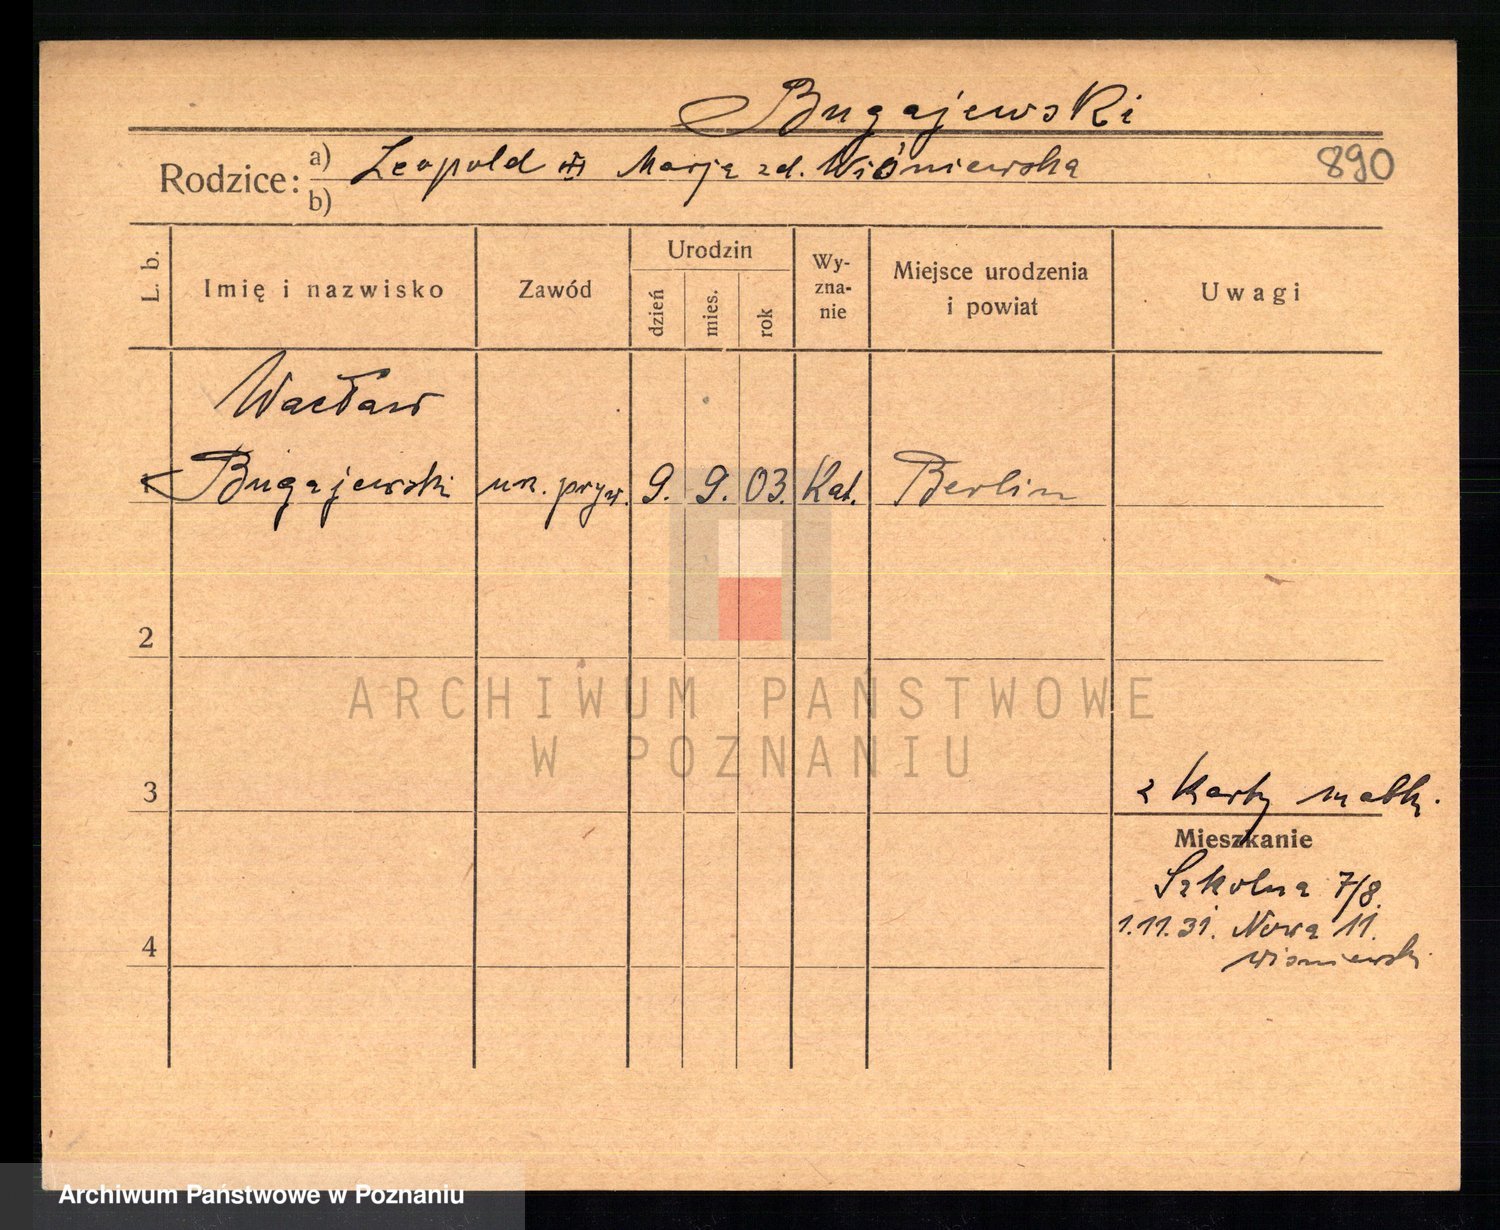 Bugajewski
Rodzice: a) Leopold i Marja zd. Wiśniewska 890
b)
L. b. Imię i nazwisko Zawód Urodzin dzień mies. rok Wy-zna-nie Miejsce urodzenia i powiat Uwagi
Wacław
1 Bugajewski urz. pryw. 9. 9. 03. Kat. Berlin
2
ARCHIWUM PAŃSTWOWE
W POZNANIU
3
z karty matki.
Mieszkanie
Szkolna 7/8.
1.11.31. Nowa 11.
4
Wiśniewski
Archiwum Państwowe w Poznaniu